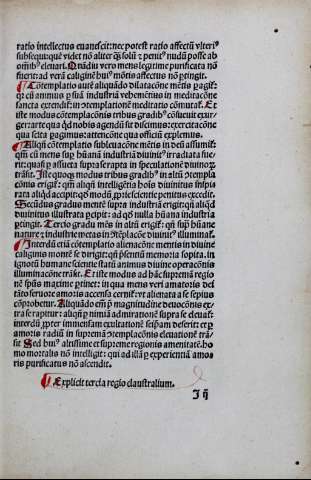 ratio intellectus euanescit: nec potest ratio affectũ vlteriꝰ
subsequi: quẽ videt nõ aliter qͣ solũ ⁊ penitꝰ nudũ posse ab
oĩbꝰ eleuari. Qͣdiu vero mens legitime purificata nõ
fuerit: ad verã caliginẽ huiꝰ mõtis affectus nõ ꝑtingit.
Cõtemplatio autẽ aliquãdo dilatacõne mẽtis ꝑagit̃:
qñ cũ animus ꝑ suã industriã vehemẽtius in meditacõne
sancta extendit̃: in ↄtemplationẽ meditatio cõmutat̃. Et
iste modus cõtemplationis tribus gradibꝰ cõsueuit exur-
gere: arte qua qͥd nobis agendũ sit discimus: exercitacõne
qua facta ꝑagimus: attencõne qua officiũ explemus.
Aliqñ cõtemplatio subleuacõne mẽtis in deũ assumit̃:
qm̃ cũ mens suꝑ hũanã industriã diuinitꝰ irradiata fue-
rit: quasi ꝑ assueta supra se rapta in speculationẽ diuinoꝝ
trãsit. Iste quoqꝫ modus tribus gradibꝰ in altũ ↄtempla
cõnis erigit̃: qm̃ aliqñ intelligẽtia hoĩs diuinitus inspi
rata aliqͥd accipit: qd̃ modũ ꝓprie scientie penitus excedit.
Secũdus gradus mentẽ supra industriã erigit: qñ aliqͥd
diuinitus illustrata ꝑcipit: ad qd̃ nulla hũana industria
ꝑtingit. Tercio gradu mẽs in altũ erigit̃: qñ suꝑ hũane
nature ⁊ industrie metas in ↄtẽplacõe diuinitꝰ illuminat̃.
Interdũ eciã cõtemplatio alienacõne mentis in diuine
caliginis monte se dirigit: qñ p̃sentiũ memoria sopita. in
ignotũ humane scientie statũ animus diuine operacõnis
illuminacõne trãsit. Et iste modus ad hãc supremã regio
nẽ spũs maxime ꝑtinet: in qua mens veri amatoris dei
tãto feruore amoris accensa cernit̃: vt alienata a se sepius
cõprobetur. Aliquãdo em̃ p̃ magnitudine deuocõnis ex-
tra se rapitur: aliqñ p̃ nimia admiratione supra se eleuat̃:
interdũ ꝓpter immensam exultationẽ seipam̃ deserit: et ꝑ
amoris radiũ in supremã ↄtemplacõnis eleuationẽ trãs-
sit Sed huiꝰ altissime et supreme regionis amenitatẽ. ho
mo mortalis nõ intelligit: qui ad illã ꝑ experientiã amo-
ris purificatus nõ ascendit.
Explicit tercia regio claustralium.